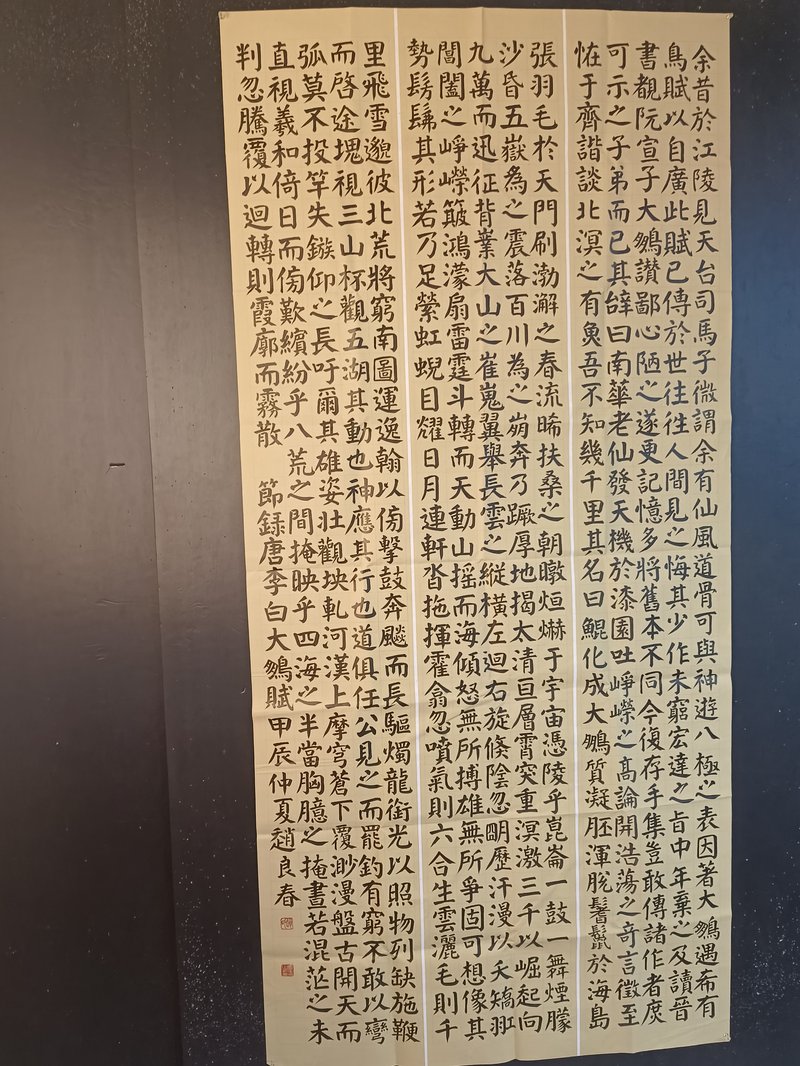 余昔於江陵見天台司馬子微謂余有仙風道骨可與神遊八極之表因著大鵬遇希有
鳥賦以自廣此賦已傳於世往往人間見之悔其少作未窮宏達之旨中年棄之及讀晉
書覩阮宣子大鵬讚鄙心陋之遂更記憶多將舊本不同今復存手集豈敢傳諸作者庶
可示之子弟而已其辝曰南華老仙發天機於漆園吐崢嶸之高論開浩蕩之奇言徵至
恠于齊諧談北溟之有魚吾不知幾千里其名曰鯤化成大鵬質凝胚渾脫鬐鬣於海島
張羽毛於天門刷渤澥之春流晞扶桑之朝暾烜爀于宇宙憑陵乎崑崙一鼓一舞煙朦
沙昏五嶽為之震落百川為之崩奔乃蹶厚地揭太清亘層霄突重溟激三千以崛起向
九萬而迅征背嶪大山之崔嵬翼舉長雲之縱橫左迴右旋倏陰忽明歷汗漫以夭矯羾
閶闔之崢嶸簸鴻濛扇雷霆斗轉而天動山搖而海傾怒無所搏雄無所爭固可想像其
勢髣髴其形若乃足縈虹蜺目耀日月連軒沓拖揮霍翕忽噴氣則六合生雲灑毛則千
里飛雪邈彼北荒將窮南圖運逸翰以傍擊鼓奔飈而長驅燭龍銜光以照物列缺施鞭
而啓途塊視三山杯觀五湖其動也神應其行也道俱任公見之而罷釣有窮不敢以彎
弧莫不投竿失鏃仰之長吁爾其雄姿壯觀坱軋河漢上摩穹蒼下覆渺漫盤古開天而
直視羲和倚日而傍歎繽紛乎八荒之間掩映乎四海之半當胸臆之掩晝若混茫之未
判忽騰覆以迴轉則霞廓而霧散 節録唐李白大鵬賦甲辰仲夏趙良春